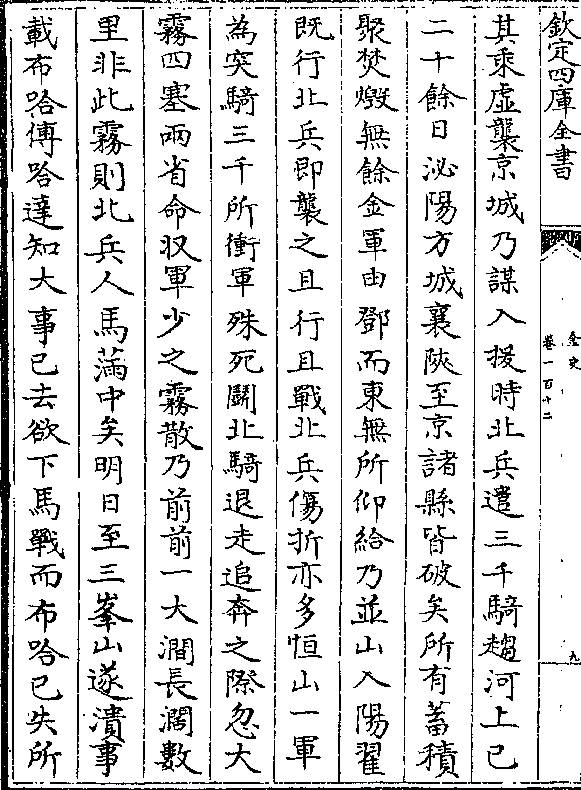 欽定四庫全書
金史
卷一百十二
九
其乘虛襲京城乃謀入援時北兵遣三千騎趨河上已
二十餘日泌陽方城襄陝至京諸縣皆破矣所有蓄積
聚焚燬無餘金軍由鄧而東無所仰給乃並山入陽翟
既行北兵即襲之且行且戰北兵傷折亦多恒山一軍
為突騎三千所衝軍殊死鬭北騎退走追奔之際忽大
霧四塞兩省命収軍少之霧散乃前前一大澗長濶數
里非此霧則北兵人馬滿中矣明日至三峯山遂潰事
載布哈傳哈達知大事已去欲下馬戰而布哈已失所